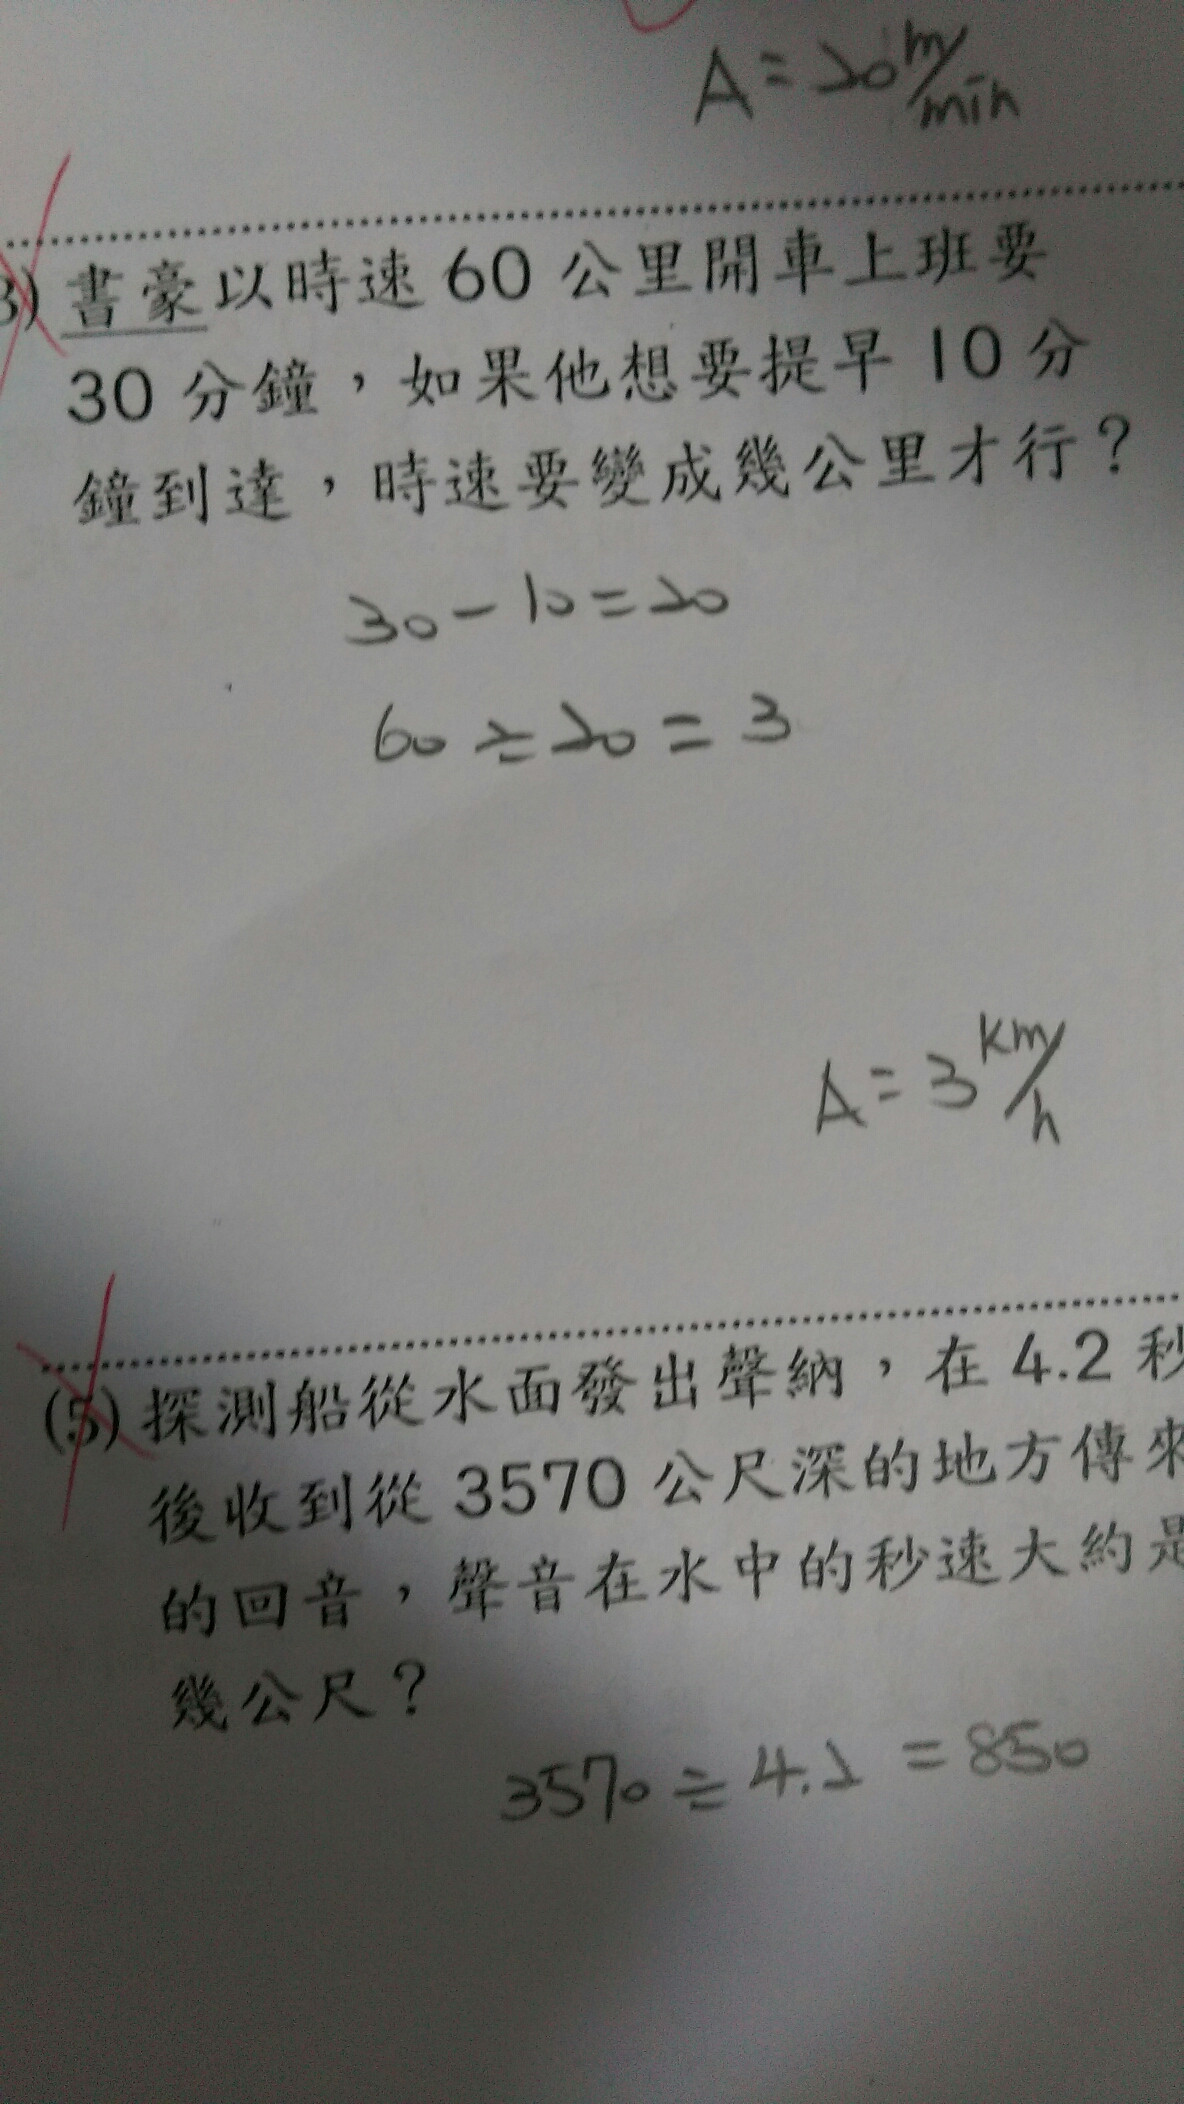 A = 20 m/min
3) 書豪以時速 60 公里開車上班要
30 分鐘，如果他想要提早 10 分
鐘到達，時速要變成幾公里才行？
30 - 10 = 20
60 ÷ 20 = 3
A = 3 km/h
(5) 探測船從水面發出聲納，在 4.2 秒
後收到從 3570 公尺深的地方傳來
的回音，聲音在水中的秒速大約是
幾公尺？
3570 ÷ 4.2 = 850